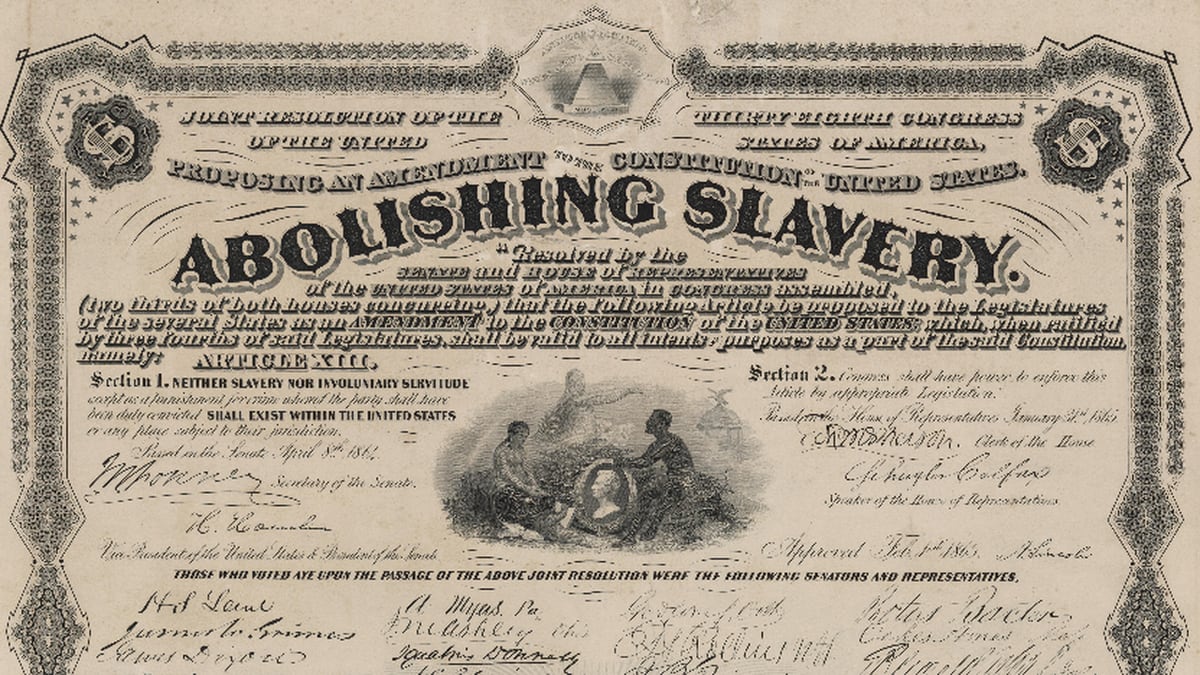 JOINT RESOLUTION OF THE THIRTY EIGHTH CONGRESS
OF THE UNITED STATES OF AMERICA,
PROPOSING AN AMENDMENT TO THE CONSTITUTION OF THE UNITED STATES.
ABOLISHING SLAVERY.
"Resolved by the
SENATE and HOUSE of REPRESENTATIVES
of the UNITED STATES of AMERICA in CONGRESS assembled,
(two thirds of both houses concurring,) that the following Article be proposed to the Legislatures
of the several States as an AMENDMENT to the CONSTITUTION of the UNITED STATES; which, when ratified
by three fourths of said Legislatures, shall be valid to all intents & purposes as a part of the said Constitution,
namely: ARTICLE XIII.
Section 1. NEITHER SLAVERY NOR INVOLUNTARY SERVITUDE
except as a punishment for crime whereof the party shall have
been duly convicted SHALL EXIST WITHIN THE UNITED STATES
or any place subject to their jurisdiction.
Passed in the Senate April 8th 1864.
JW Forney Secretary of the Senate.
H. Hamlin
Vice President of the United States & President of the Senate
Section 2. Congress shall have power to enforce this
Article by appropriate Legislation.
Passed in the House of Representatives January 31st 1865
McPherson. Clerk of the House
Schuyler Colfax
Speaker of the House of Representatives
Approved Feb. 1st 1865. A. Lincoln
THOSE WHO VOTED AYE UPON THE PASSAGE OF THE ABOVE JOINT RESOLUTION WERE THE FOLLOWING SENATORS AND REPRESENTATIVES,
Lane A Myers, Pa
James W. Grimes JM Ashley Ohio
James Dixon Ignatius Donnelly